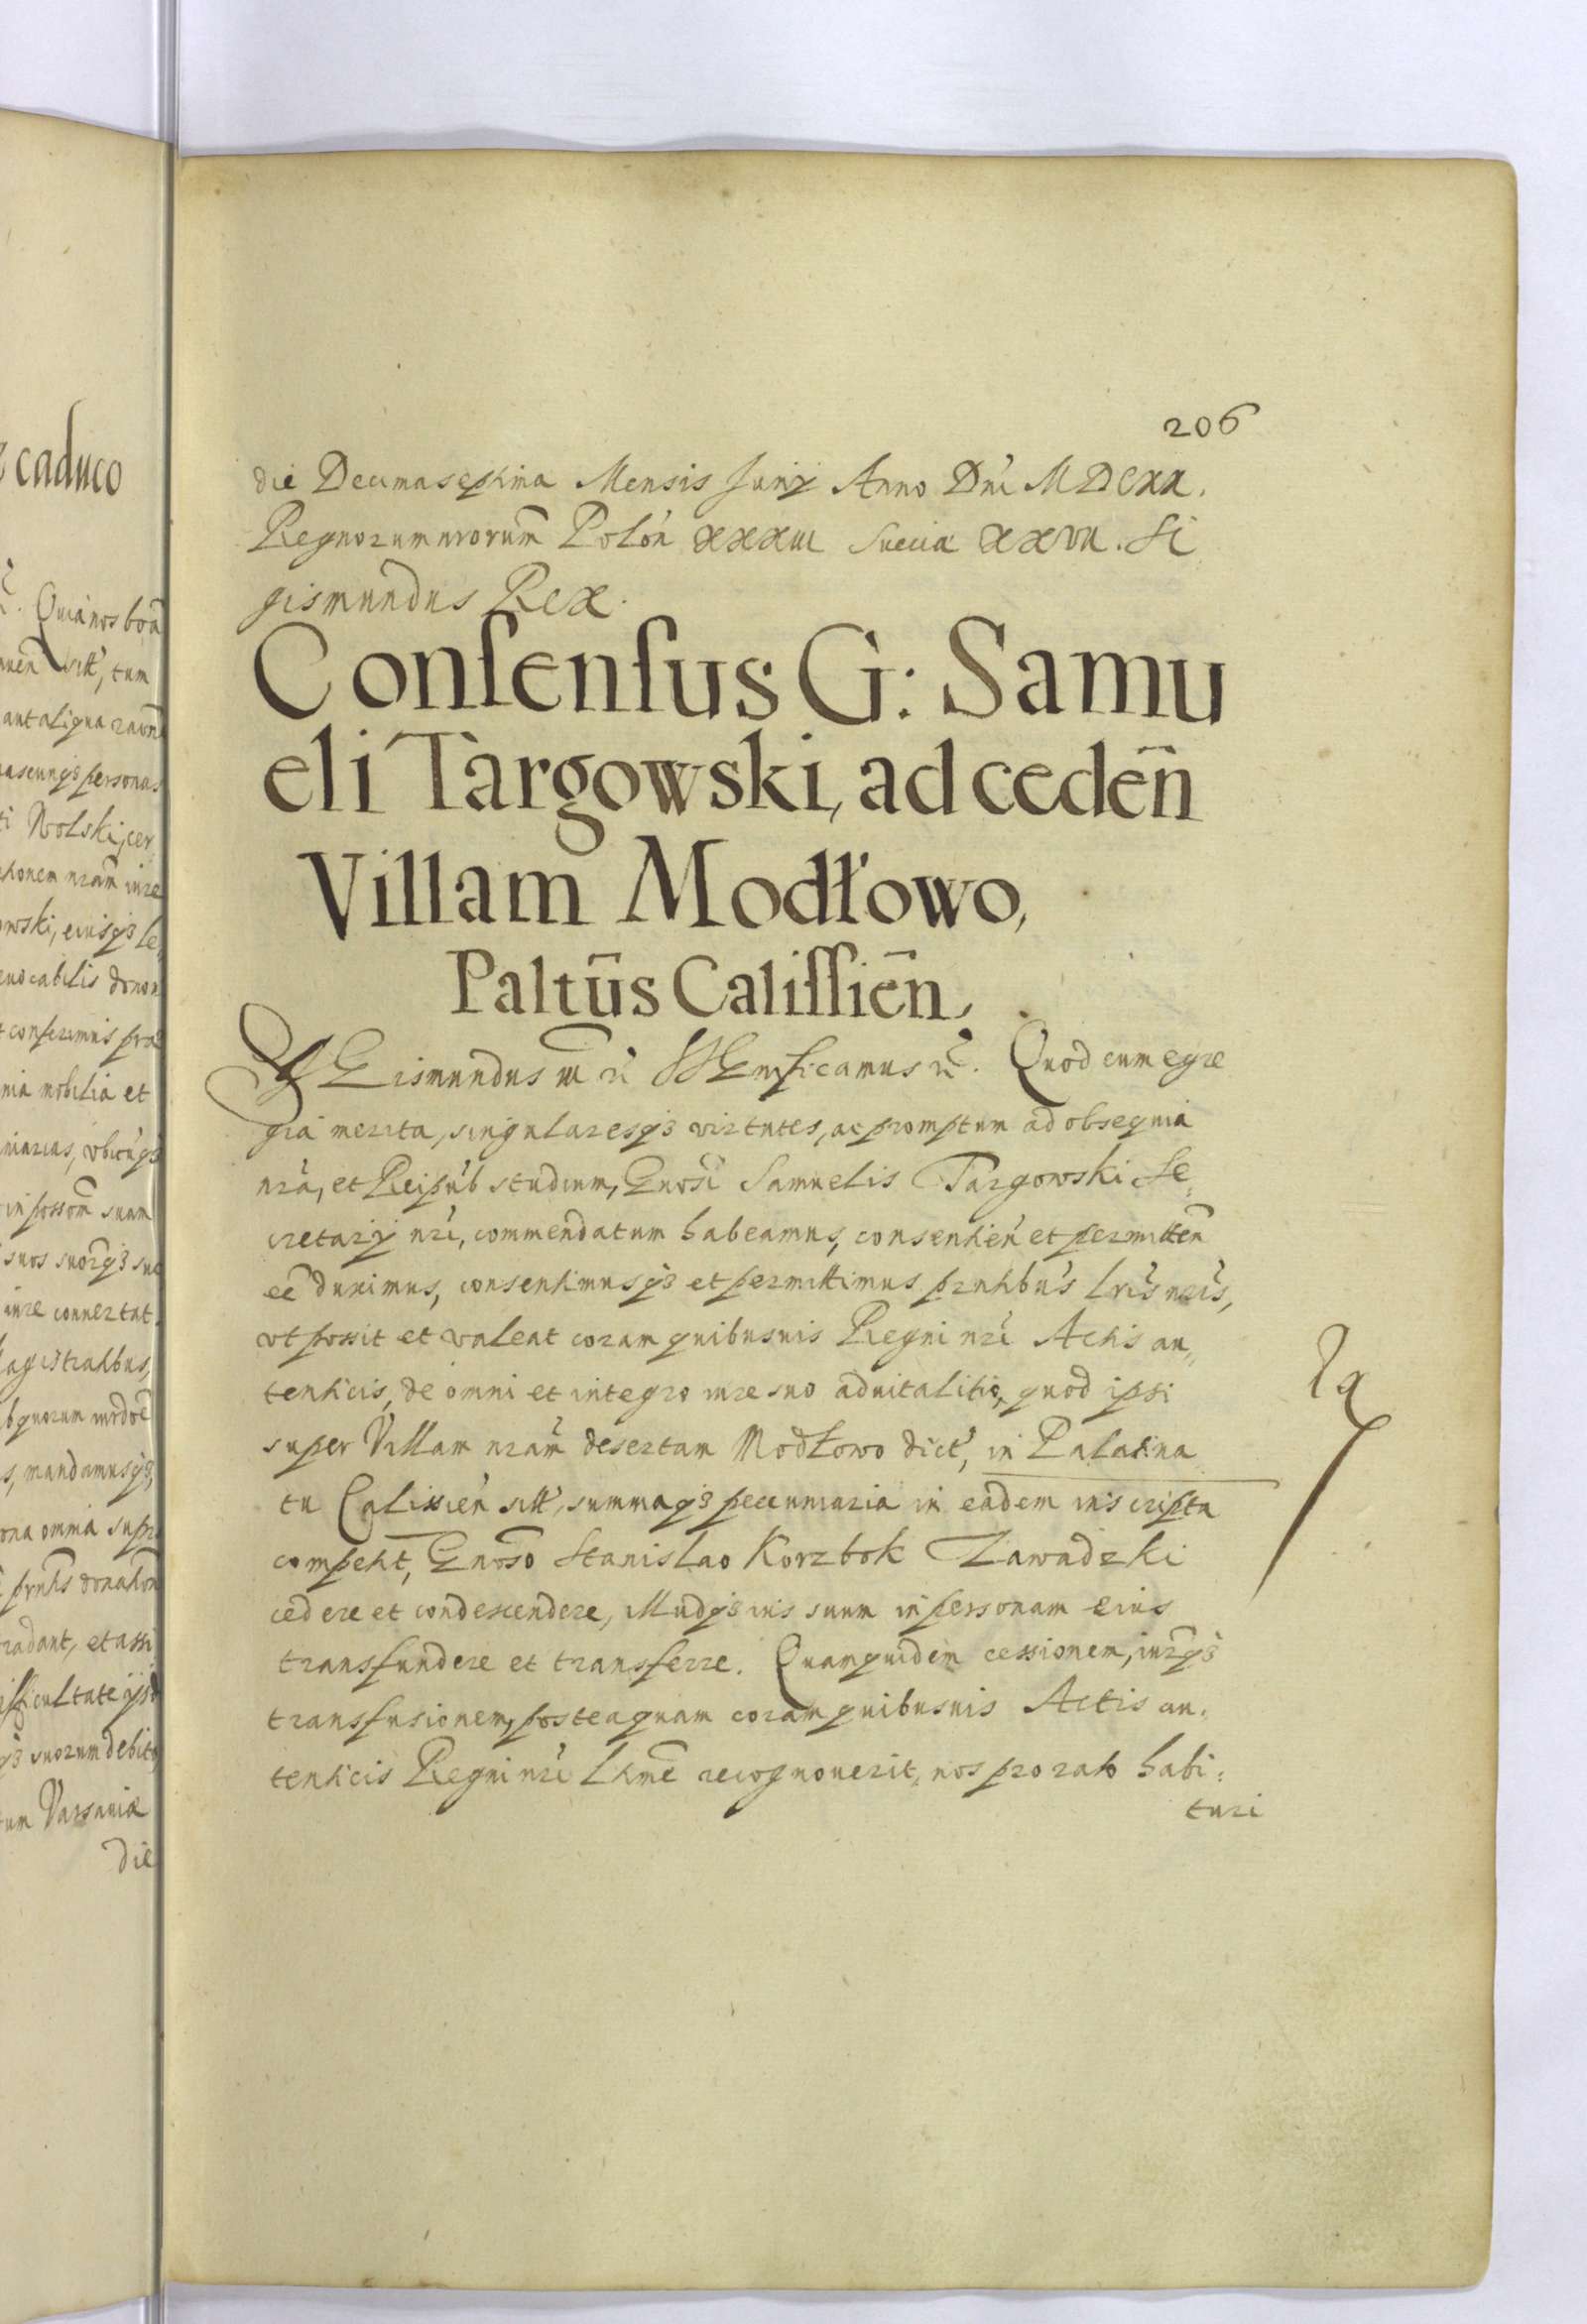 caduco
Quia nos bon̄a
sitt', tum
aut aliqua raōn
personas
Wolski, cer
nram̄ iure
owski, eiusq3 le
donōn
conferimus prae
mobilia et
in possom̄ suam
suos suorq̄3 suc
iure conuertat
quorum
mandamusq3,
omnia supr
prntis donation̄
tradant, et assi
suorum debito
Varsauiæ
die
206
die Decimaseptima Mensis Junÿ Anno Dn̄i MDCXX.
Regnorum nrorum̄ Polōn XXXIII Sueciæ XXVII. Si
gismundus Rex.
Consensus G: Samu
eli Targowski, ad cedēn
Villam Modłowo,
Paltūs Calissiēn.
SIGismundus III r̄c SIGnificamus r̄c. Quod cum egre
gia merita, singularesq3 virtutes, ac promptum ad obsequia
nrā, et Reipūb studium, Gnosī Samuelis Targowski Se
cretarÿ nrī, commendatum habeamus, consentień et permitteń
eē duximus, consentimusq3 et permittimus prntibūs Lrīs nrīs,
vt possit et valeat coram quibusuis Regni nrī Actis au„
tenticis, de omni et integro iure suo aduitalitio, quod ipsi
super Villam nram̄ desertam Modłowo dict', in Palatina
tu Calissień sitt', summaq3 pecuniaria in eadem inscripta
competit, Gnoso̅ Stanislao Korzbok Zawadzki
cedere et condescendere, illudq3 ius suum in personam eius
transfundere et transferre. Quamquidem cessionem, iurq̄3
transfusionem, posteaquam coram quibusuis Actis au:
tenticis Regni nrī Ltmē recognouerit, nos pro rato habi:
turi